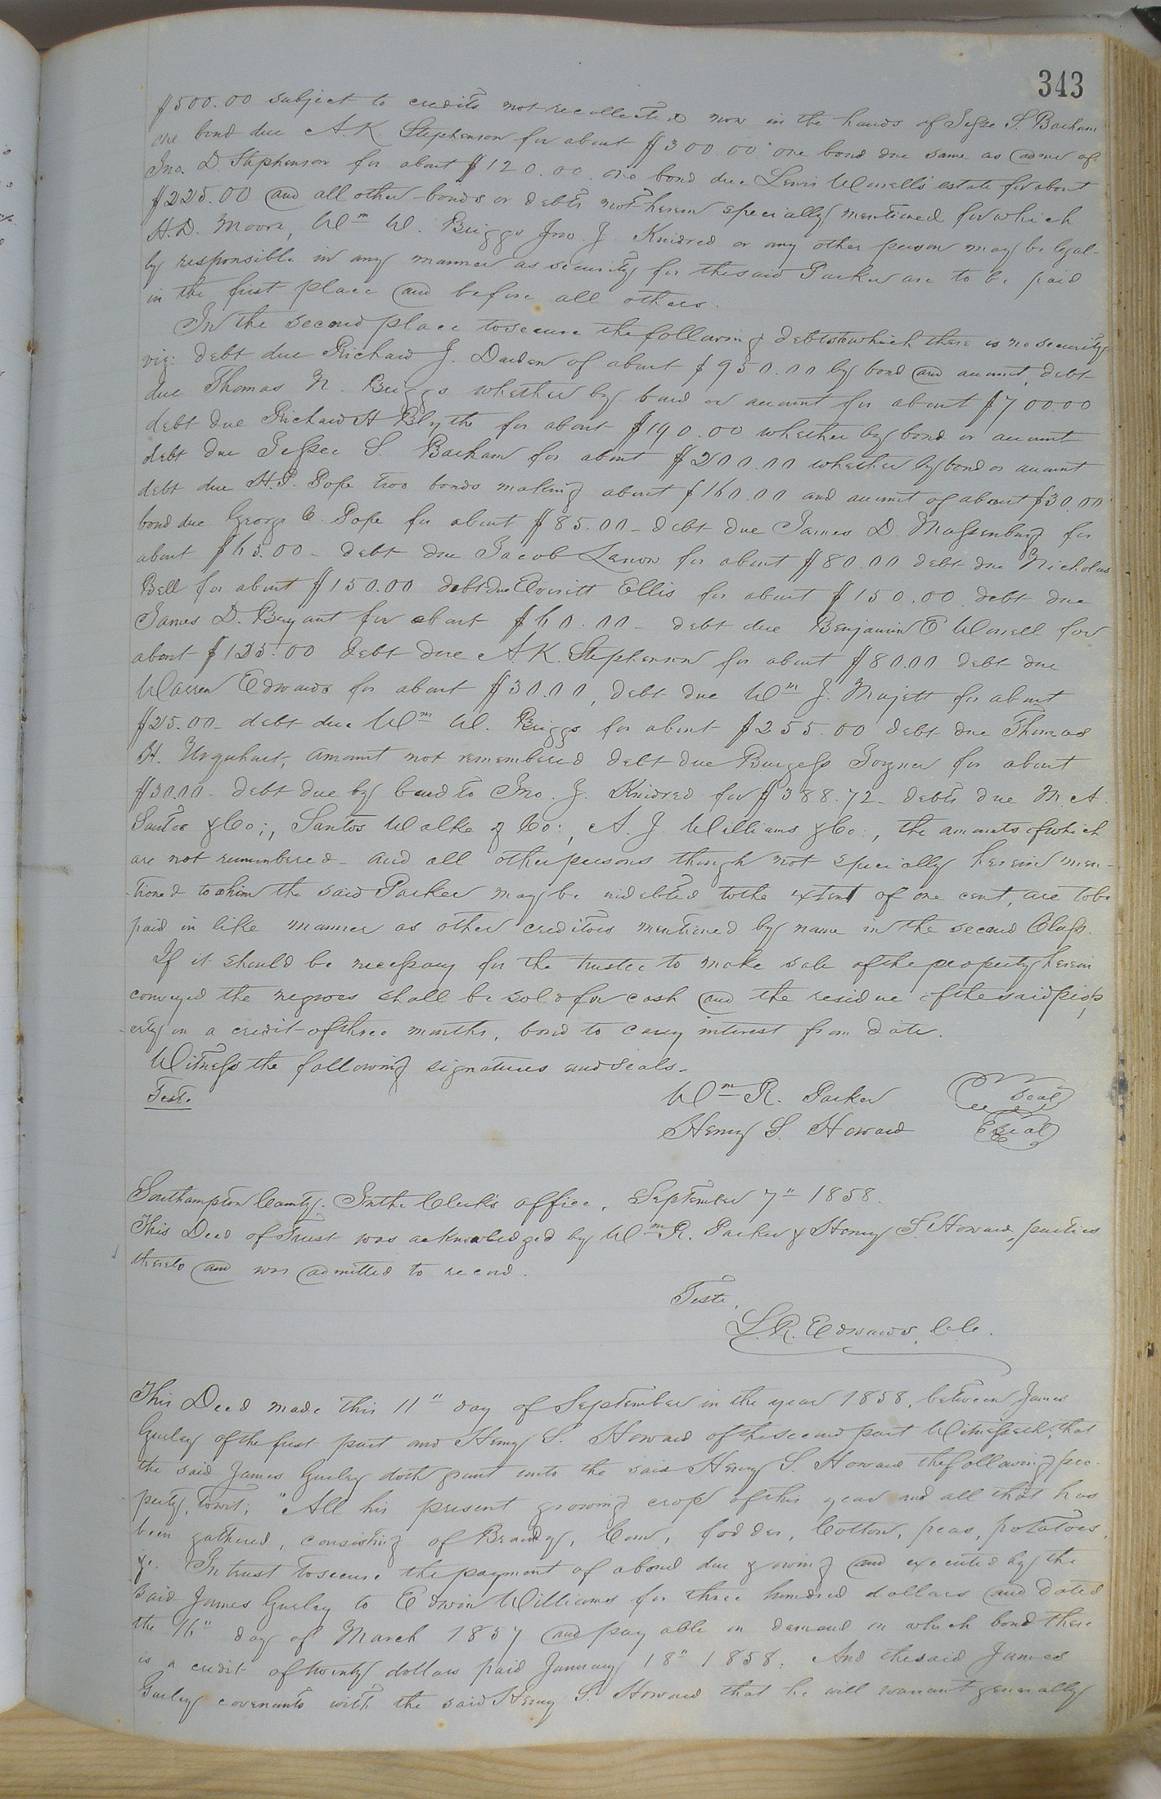 343
$500.00 subject to credits not recollected now in the hands of Jesse S. Barham
one bond due A. K. Stephenson for about $300.00 one bond due same as admr of
Jno. D Stephenson for about $120.00. one bond due Lewis Worrell's estate for about
$225.00 and all other bonds or debts not herein specially mentioned for which
H. D. Moore, Wm W. Briggs Jno. J. Kindred or any other person may be legal-
ly responsible in any manner as security for the said Parker are to be paid
in the first place and before all others.
In the second place to secure the following debts to which there is no security
viz: debt due Richard J. Darden of about $950.00 by bond and account, debt
due Thomas N. Briggs whether by bond or account for about $700.00
debt due Richard H Blythe for about $190.00 whether by bond or account
debt due Jessee S. Barham for about $200.00 whether by bond or account
debt due H. P. Pope two bonds making about $160.00 and account of about $30.00
bond due George C. Pope for about $85.00 - debt due James D. Massenburg for
about $65.00 - debt due Jacob for about $80.00 debt due Nicholas
Bell for about $150.00 debt due Everitt Ellis for about $150.00. debt due
James D. Bryant for about $60.00 - debt due Benjamin E Worrell for
about $125.00 debt due A. K. Stephenson for about $80.00 debt due
Warren Edwards for about $30.00, debt due Wm J. Majett for about
$25.00 - debt due Wm W. Briggs for about $255.00 debt due Thomas
H. Urquhart, amount not remembered debt due Burgess Joyner for about
$30.00 - debt due by bond to Jno. J. Kindred for $388.72 - debts due M A.
Santos & Co;, Santos Walke & Co:, A. J. Williams & Co:, the amounts of which
are not remembered - and all other persons though not specially herein men-
tioned to whom the said Parker may be indebted to the extent of one cent, are to be
paid in like manner as other creditors mentioned by name in the second Class.
If it should be necessary for the trustee to make sale of the property herein
conveyed the negroes shall be sold for cash and the residue of the said prop
erty on a credit of three months, bond to carry interest from date.
Witness the following signatures and seals.
Test. Wm R. Parker Seal
Henry S. Howard Seal
Southampton County. In the Clerk's office, September 7" 1858.
This Deed of Trust was acknowledged by Wm R. Parker & Henry S. Howard, parties
thereto and was admitted to record.
Teste,
L. R. Edwards, C.C.
This Deed made this 11" day of September in the year 1858, between James
Gurley of the first part and Henry S. Howard of the second part Witnesseth, that
the said James Gurley doth grant unto the said Henry S. Howard the following pro-
perty, towit; "All his present growing crop of this year and all that has
been gathered, consisting of Brandy, Corn, fodder, Cotton, peas, potatoes,
&c. In trust to secure the payment of a bond due & owing and executed by the
said James Gurley to Edwin Williams for three hundred dollars and dated
the 16" day of March 1857 and payable on demand on which bond there
is a credit of twenty dollars paid January 18" 1858. And the said James
Gurley covenants with the said Henry S. Howard that he will warrant generally